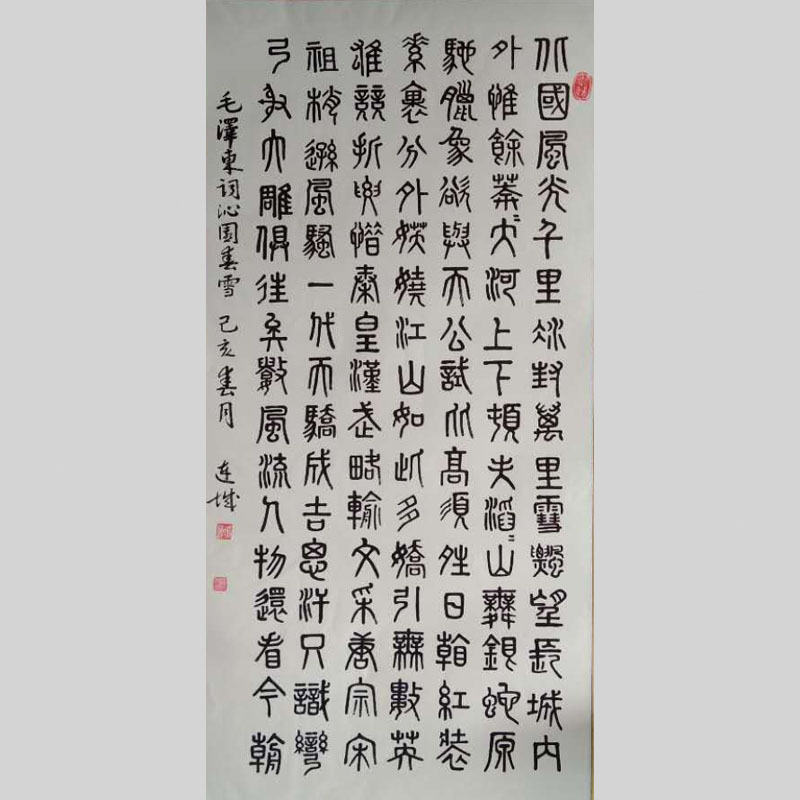 北國風光千里冰封萬里雪飄望長城內
外惟餘莽〻大河上下頓失滔〻山舞銀蛇原
馳臘象欲與天公試比高須晴日看紅裝
素裹分外妖嬈江山如此多嬌引無數英
雄競折腰惜秦皇漢武略輸文采唐宗宋
祖稍遜風騷一代天驕成吉思汗只識彎
弓射大雕俱往矣數風流人物還看今朝
毛澤東詞沁園春雪 己亥春月 連城